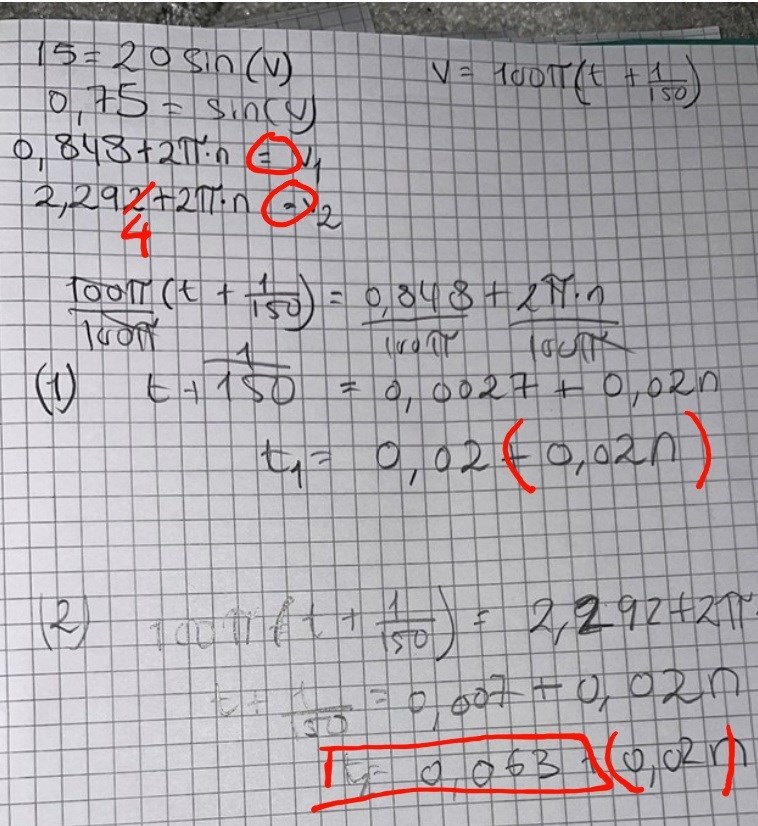 15 = 20 sin(v)
v = 100π(t + 1/150)
0,75 = sin(v)
0,848 + 2π·n = v₁
2,292 + 2π·n = v₂
4
100π/100π (t + 1/150) = 0,848/100π + 2π·n/100π
(1) t + 1/150 = 0,0027 + 0,02n
t₁ = 0,02 (+ 0,02n)
(2) 100π(t + 1/150) = 2,292 + 2π
t + 1/150 = 0,007 + 0,02n
t = 0,063 + (0,02n)